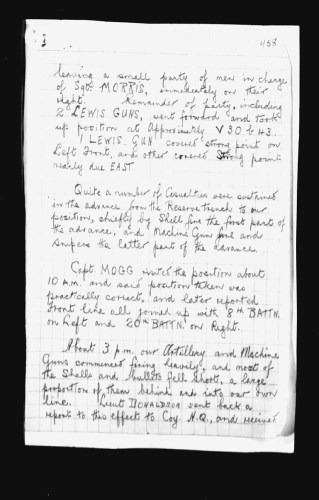 3
458
leaving a small party of men in charge
of Sgt. MORRIS, immediately on their
right. Remainder of party, including
2 LEWIS GUNS, went forward and took
up position at Approximately V 30 b 43.
1 LEWIS GUN covered strong point on
Left Front, and other covered Strong point
nearly due EAST
Quite a number of Casualties were sustained
in the advance from the Reserve trench to our
position, chiefly by Shell fire the first part of
the advance, and Machine Gun fire and
snipers the latter part of the advance.
Capt. MOGG visited the position about
10 A.m. and said position taken was
practically correct, and later reported
Front line all joined up with 8TH BATTN.
on Left and 20TH BATTN. on Right.
About 3 p.m. our Artillery and Machine
Guns commenced firing heavily, and most of
the Shells and bullets fell short, a large
proportion of them behind and into our own
line. Lieut DONALDSON sent back a
report to this effect to Coy. H.Q., and received